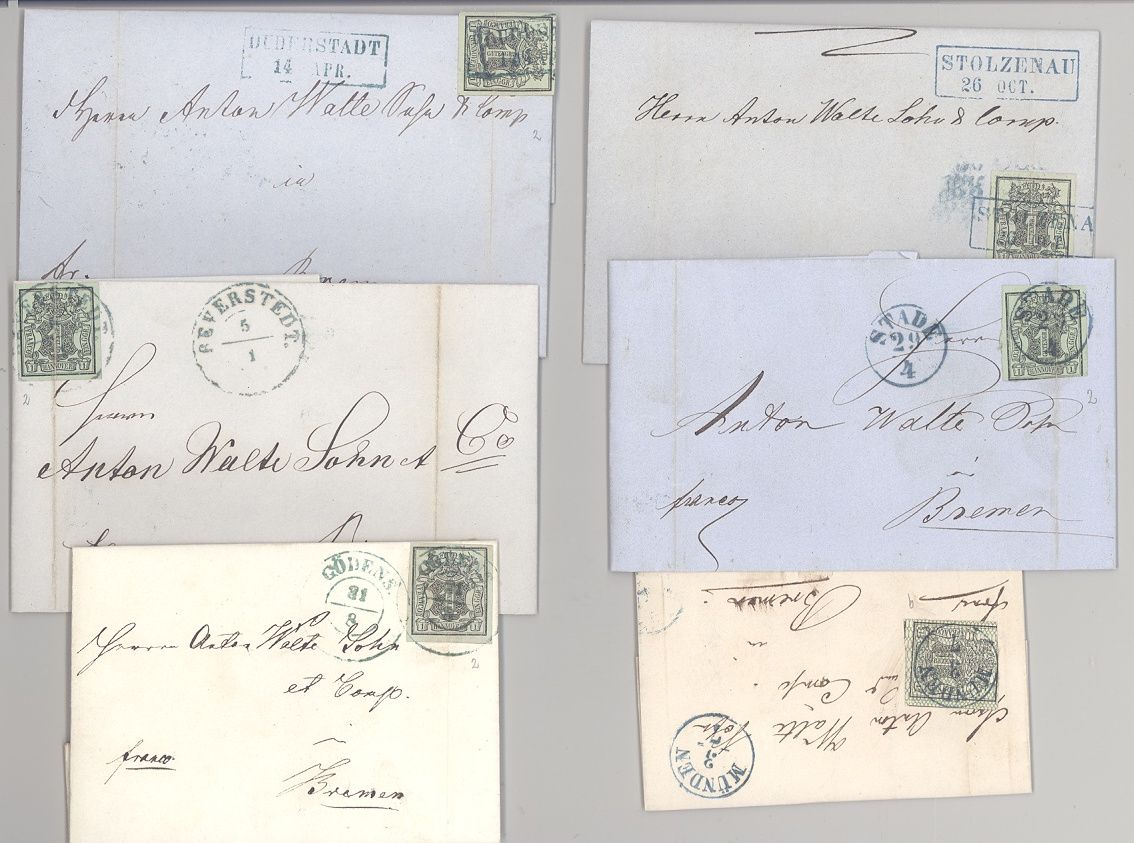 DUDERSTADT
14 APR.
Herrn Anton Walte Sohn & Comp
in
fr.
2
STOLZENAU
26 OCT.
Herrn Anton Walte Sohn & Comp.
STOLZENA
BEVERSTEDT.
5
1
2
Herrn
Anton Walte Sohn et Co
HANNOVER
STADE
29
4
STADE
HANNOVER
2
Herrn
Anton Walte Sohn
franco
Bremen
GÖDENS
31
8
2
Herrn Anton Walte Sohn
et Comp.
franco
Bremen
HANNOVER
MÜNDEN
Herrn Anton
Walte Sohn
und Comp.
in
Bremen
MÜNDEN